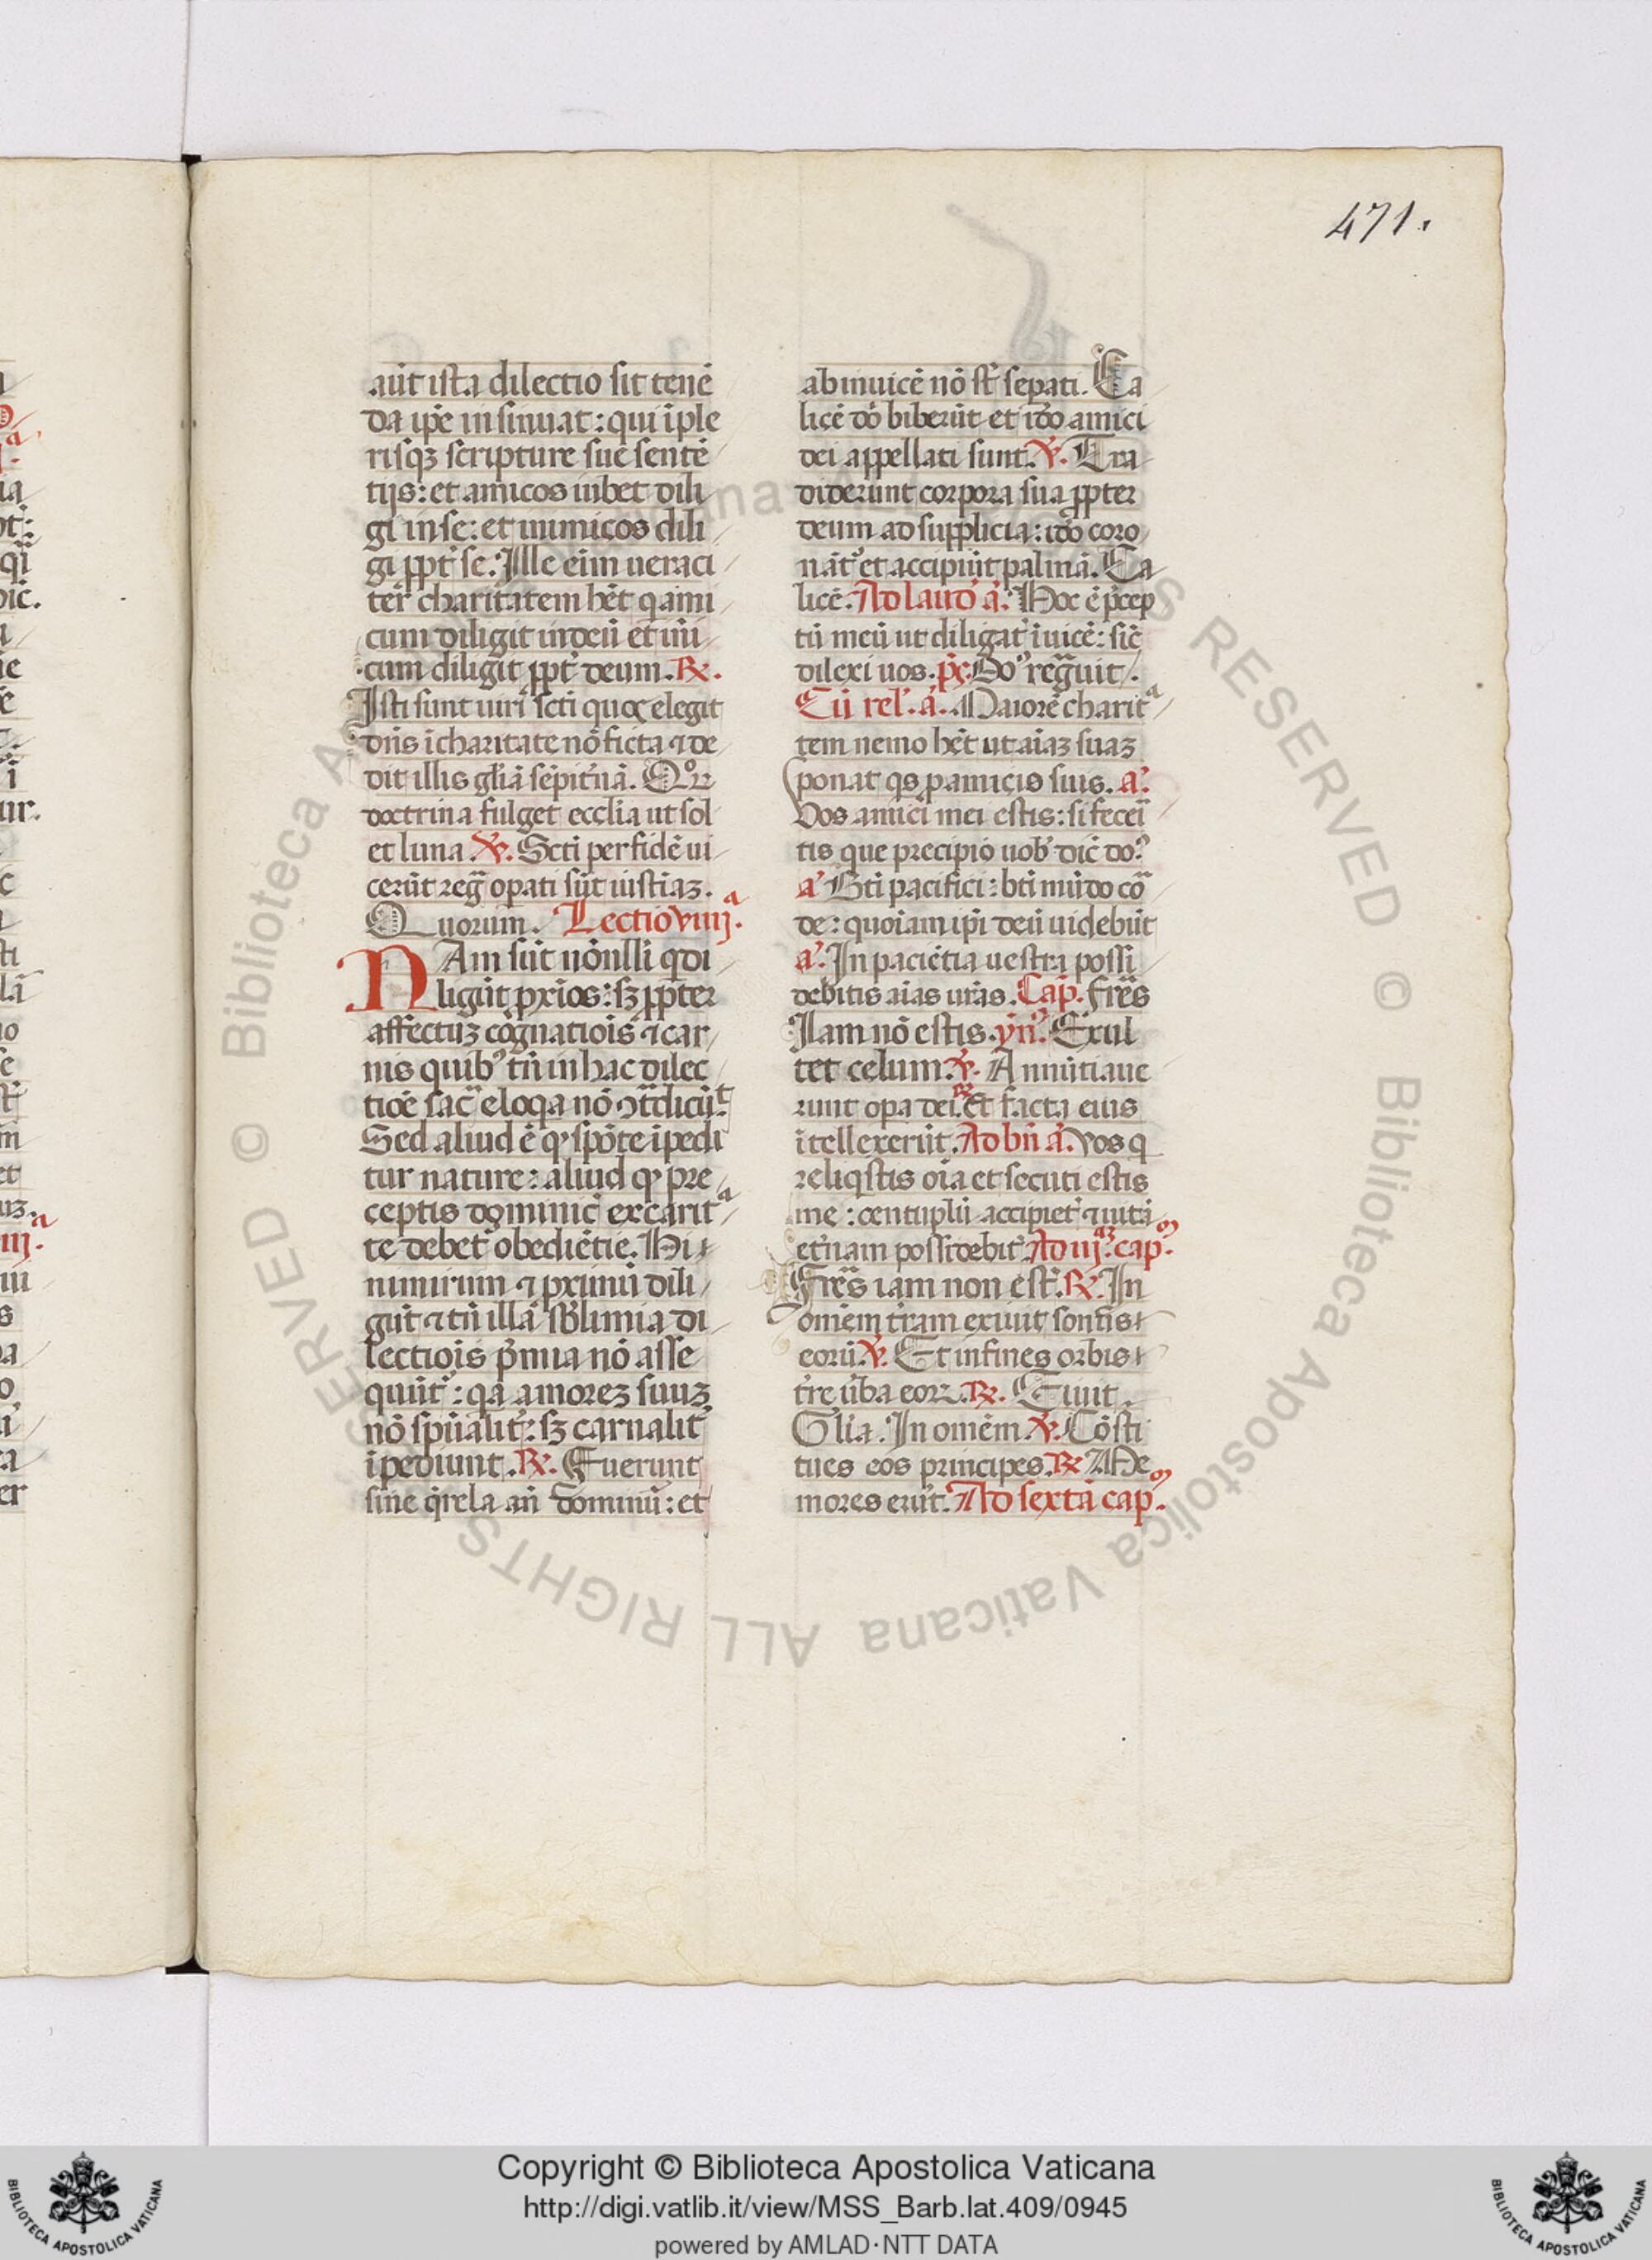 471.
aūt ista dilectio sit tenē
da ip̄e insinuat: qui īple
risqꝫ scripture sue sentē
tijs: et amicos iubet dili
gi in se: et inimicos dili
gi ꝓpt̄ se. Ille eīm ueraci
ter charitatem hēt q ami
cum diligit in deū et inī
cum diligit ꝓpt̄ deum. ℟.
Isti sunt uiri sc̄ti quoꝝ elegit
dn̄s ī charitate nō ficta ⁊ de
dit illis gl̄iā sēpit̄nā. Qͦꝝ
doctrina fulget ecc̄lia ut sol
et luna. ℣. Sc̄ti per fidē ui
cerūt reḡ opati sūt iustiāꝫ.
Quorum. Lectio viiijᵃ.
NAm sūt nōnulli q di
ligūt ꝓxīos: sꝫ ꝓpter
affectuꝫ cōgnatiōis ⁊ car
nis quibꝰ tn̄ in hac dilec
tiōe sac̄ eloqa nō ꝯt̄dicūt.
Sed aliud ē qꝙ spōte īpedi
tur nature: aliud qꝙ pre
ceptis dominic̄ ex caritᵃ
te debet̄ obediētie. Hi
nimirum ⁊ ꝓximū dili
gūt ⁊ tn̄ illā sb̄limia di
lectiōis p̄mia nō asse
quūt̄: qa amoreꝫ suuꝫ
nō spūalit̄: sꝫ carnalit̄
īpediunt. ℟. Fuerunt
sine q̄rela an̄ dominū: et
ab inuicē nō st̄ sepati. Ca
licē dō biberūt et ido amici
dei appellati sunt. ℣. Tra
diderunt corpora sua ꝓpter
deum ad supplicia: ido coro
nāt̄ et accipiūt palmā. Ca
licē. Ad laud̄ a. Hoc ē p̄cep
tū meū ut diligat̄ īuicē: sic̄
dilexi uos. p̄s. Do regᵃuit.
Cū rel. a. Maiorē charitᵃ
tem nemo hēt ut aīaꝫ suaꝫ
ponat qs p amicis suis. a.
Vos amici mei estis: si feceī
tis que precipio uob̄ dic̄ do.
a. Bt̄i pacifici: bt̄i mūdo co
de: quoīam ip̄i deū uidebūt
a. In paciētia uestra possi
debitis aīas ur̄as. Cap. Fr̄es
Iam nō estis. ymͦ. Exul
tet celum. ℣. Annūtiaue
runt opa dei. ℟ Et facta eius
ītellexerūt. Ad bn̄ a. Vos q
reliqstis oīa et secuti estis
me: centuplū accipiet̄ ⁊ uitā
et̄nam possidebit̄. Ad iij. cap.
Fr̄es iam non est̄. ℟. In
omēm t̄ram exiuit son̄ ⁊
eorū. ℣. Et in fines orbis
t̄re ūba eoꝝ. ℟. Exiuit.
Gl̄ia. In omēm. ℣. Cōsti
tues eos principes. ℟ Me
mores erūt. Ad sextā cap.
Copyright © Biblioteca Apostolica Vaticana
http://digi.vatlib.it/view/MSS_Barb.lat.409/0945
powered by AMLAD·NTT DATA
© Biblioteca Apostolica Vaticana ALL RIGHTS RESERVED
BIBLIOTECA APOSTOLICA VATICANA
BIBLIOTECA APOSTOLICA VATICANA